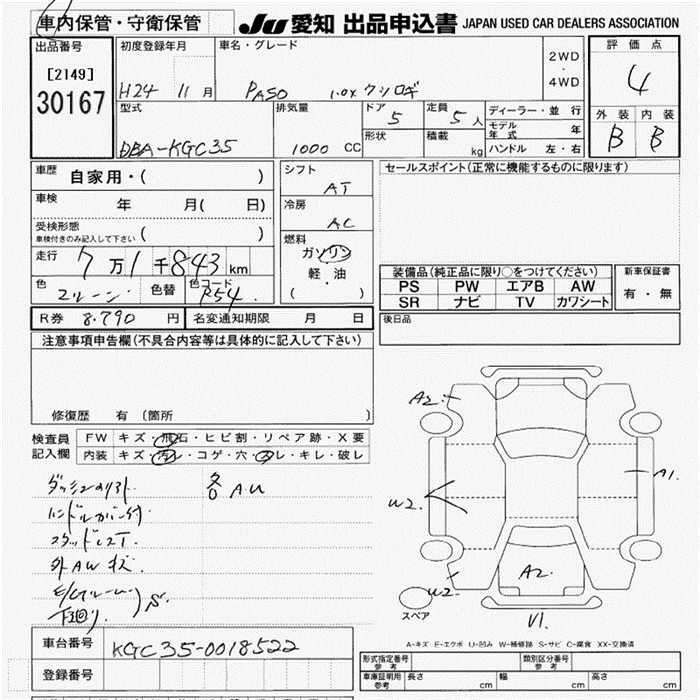 車内保管・守衛保管
JU 愛知 出品申込書 JAPAN USED CAR DEALERS ASSOCIATION
出品番号
[2149]
30167
初度登録年月
H24 11月
車名・グレード
PASO 1.0X クツロギ
2WD
・
4WD
評価点
4
型式
DBA-KGC35
排気量
1000 CC
ドア
5
定員
5人
形状
積載
kg
ディーラー・並行
モデル年式 年
ハンドル 左・右
外装 内装
B B
車歴 自家用・( )
車検 年 月( 日)
受検形態
車検付きのみ記入して下さい ( )
走行 7万1千843km
色
色替
色コード R54
シフト
AT
冷房
AC
燃料
ガソリン
軽・油
( )
セールスポイント(正常に機能するものに限ります)
装備品(純正品に限り○をつけてください)
PS PW エアB AW
SR ナビ TV カワシート
新車保証書
有・無
R券 8.790円
名変通知期限 月 日
後日品
注意事項申告欄(不具合内容等は具体的に記入して下さい)
修復歴 有 (箇所 )
検査員記入欄
FW キズ・飛石・ヒビ割・リペア跡・X要
内装 キズ・汚レ・コゲ・穴・スレ・キレ・破レ
各AU
スタッドレスT.
外AWキズ
下回り) S.
A2.
A1.
W2.
W2.
A2.
V1.
スペア
A-キズ E-エクボ U-凹み W-補修跡 S-サビ C-腐食 XX-交換済
車台番号 KGC35-0018522
登録番号
形式指定番号 参考
類別区分番号 参考
車庫証明用 参考 長さ cm 幅 cm 高さ cm